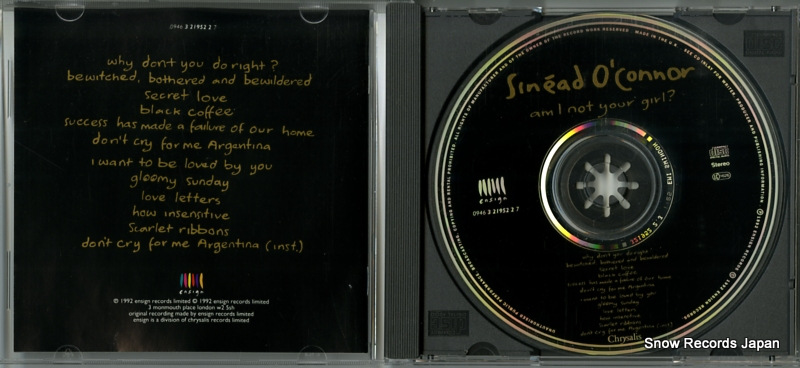 0946 3 21952 2 7
why don't you do right?
bewitched, bothered and bewildered
secret love
black coffee
success has made a failure of our home
don't cry for me Argentina
i want to be loved by you
gloomy sunday
love letters
how insensitive
scarlet ribbons
don't cry for me Argentina (inst.)
ensign
℗ 1992 ensign records limited © 1992 ensign records limited
3 monmouth place london w2 5sh
original recording made by ensign records limited
ensign is a division of chrysalis records limited
Sinéad O'Connor
am I not your girl?
ensign
0946 3 21952 2 7
Stereo
why don't you do right?
bewitched bothered and bewildered
secret love
black coffee
success has made a failure of our home
don't cry for me Argentina
i want to be loved by you
gloomy sunday
love letters
how insensitive
scarlet ribbons
don't cry for me Argentina (inst)
Chrysalis
Snow Records Japan
www.snowrecords.jp